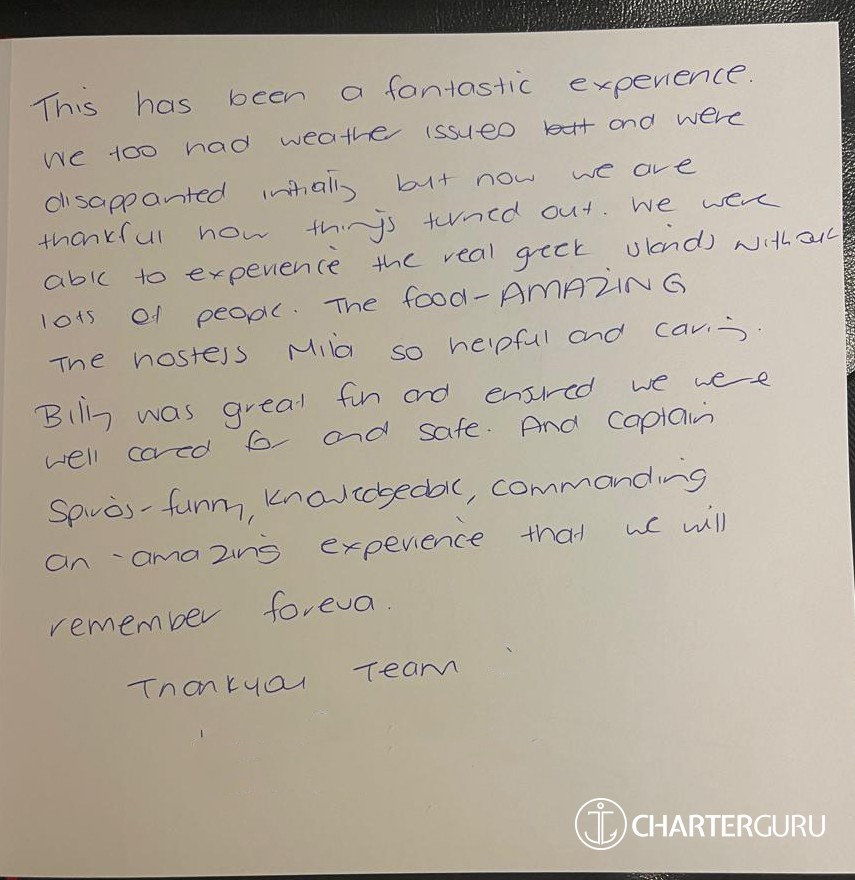 This has been a fantastic experience.
We too had weather issues butt and were
disappanted initially but now we are
thankful how things turned out. We were
able to experience the real greek islands without
lots of people. The food - AMAZING
The hostess Mila so helpful and caring.
Billy was great fun and ensured we were
well cared for and safe. And Captain
Spiros - funny, knowledgeable, commanding
an - amazing experience that we will
remember foreva.
Thankyou Team
CHARTERGURU